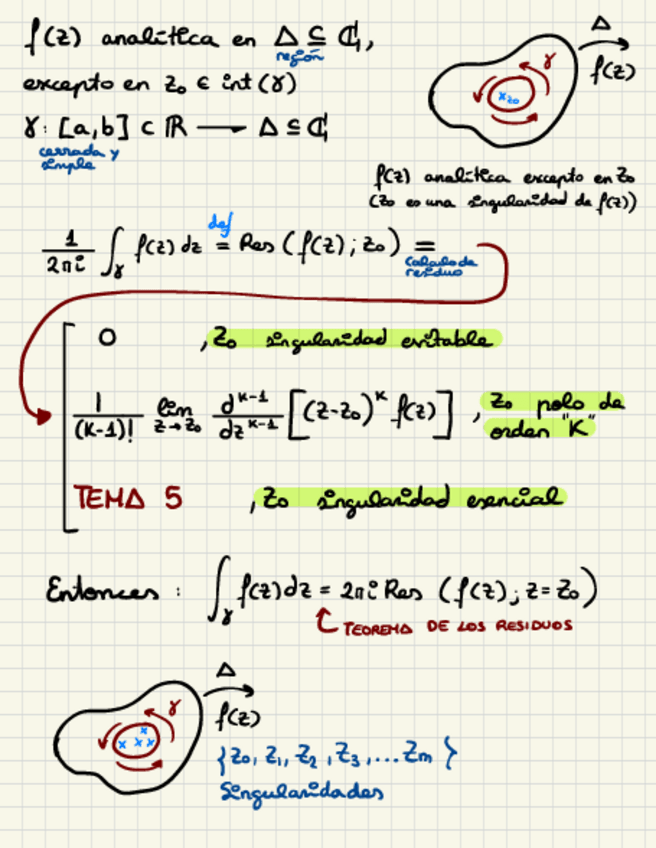 f(z) analítica en Δ ⊆ ℂ,
región
excepto en z₀ ∈ int(γ)
γ: [a,b] ⊂ ℝ ⟶ Δ ⊆ ℂ
cerrada y
simple
Δ
f(z)
γ
x z₀
f(z) analítica excepto en z₀
(z₀ es una singularidad de f(z))
def
1/(2πi) ∫_γ f(z) dz = Res (f(z); z₀) =
calculo de
residuo
0 , z₀ singularidad evitable
1/(k-1)! lím_{z→z₀} d^{k-1}/dz^{k-1} [(z-z₀)^k f(z)] , z₀ polo de
orden "k"
TEMA 5 , z₀ singularidad esencial
Entonces : ∫_γ f(z)dz = 2πi Res (f(z); z=z₀)
TEOREMA DE LOS RESIDUOS
Δ
f(z)
γ
x x x x
{z₀, z₁, z₂, z₃, ... zm}
Singularidades